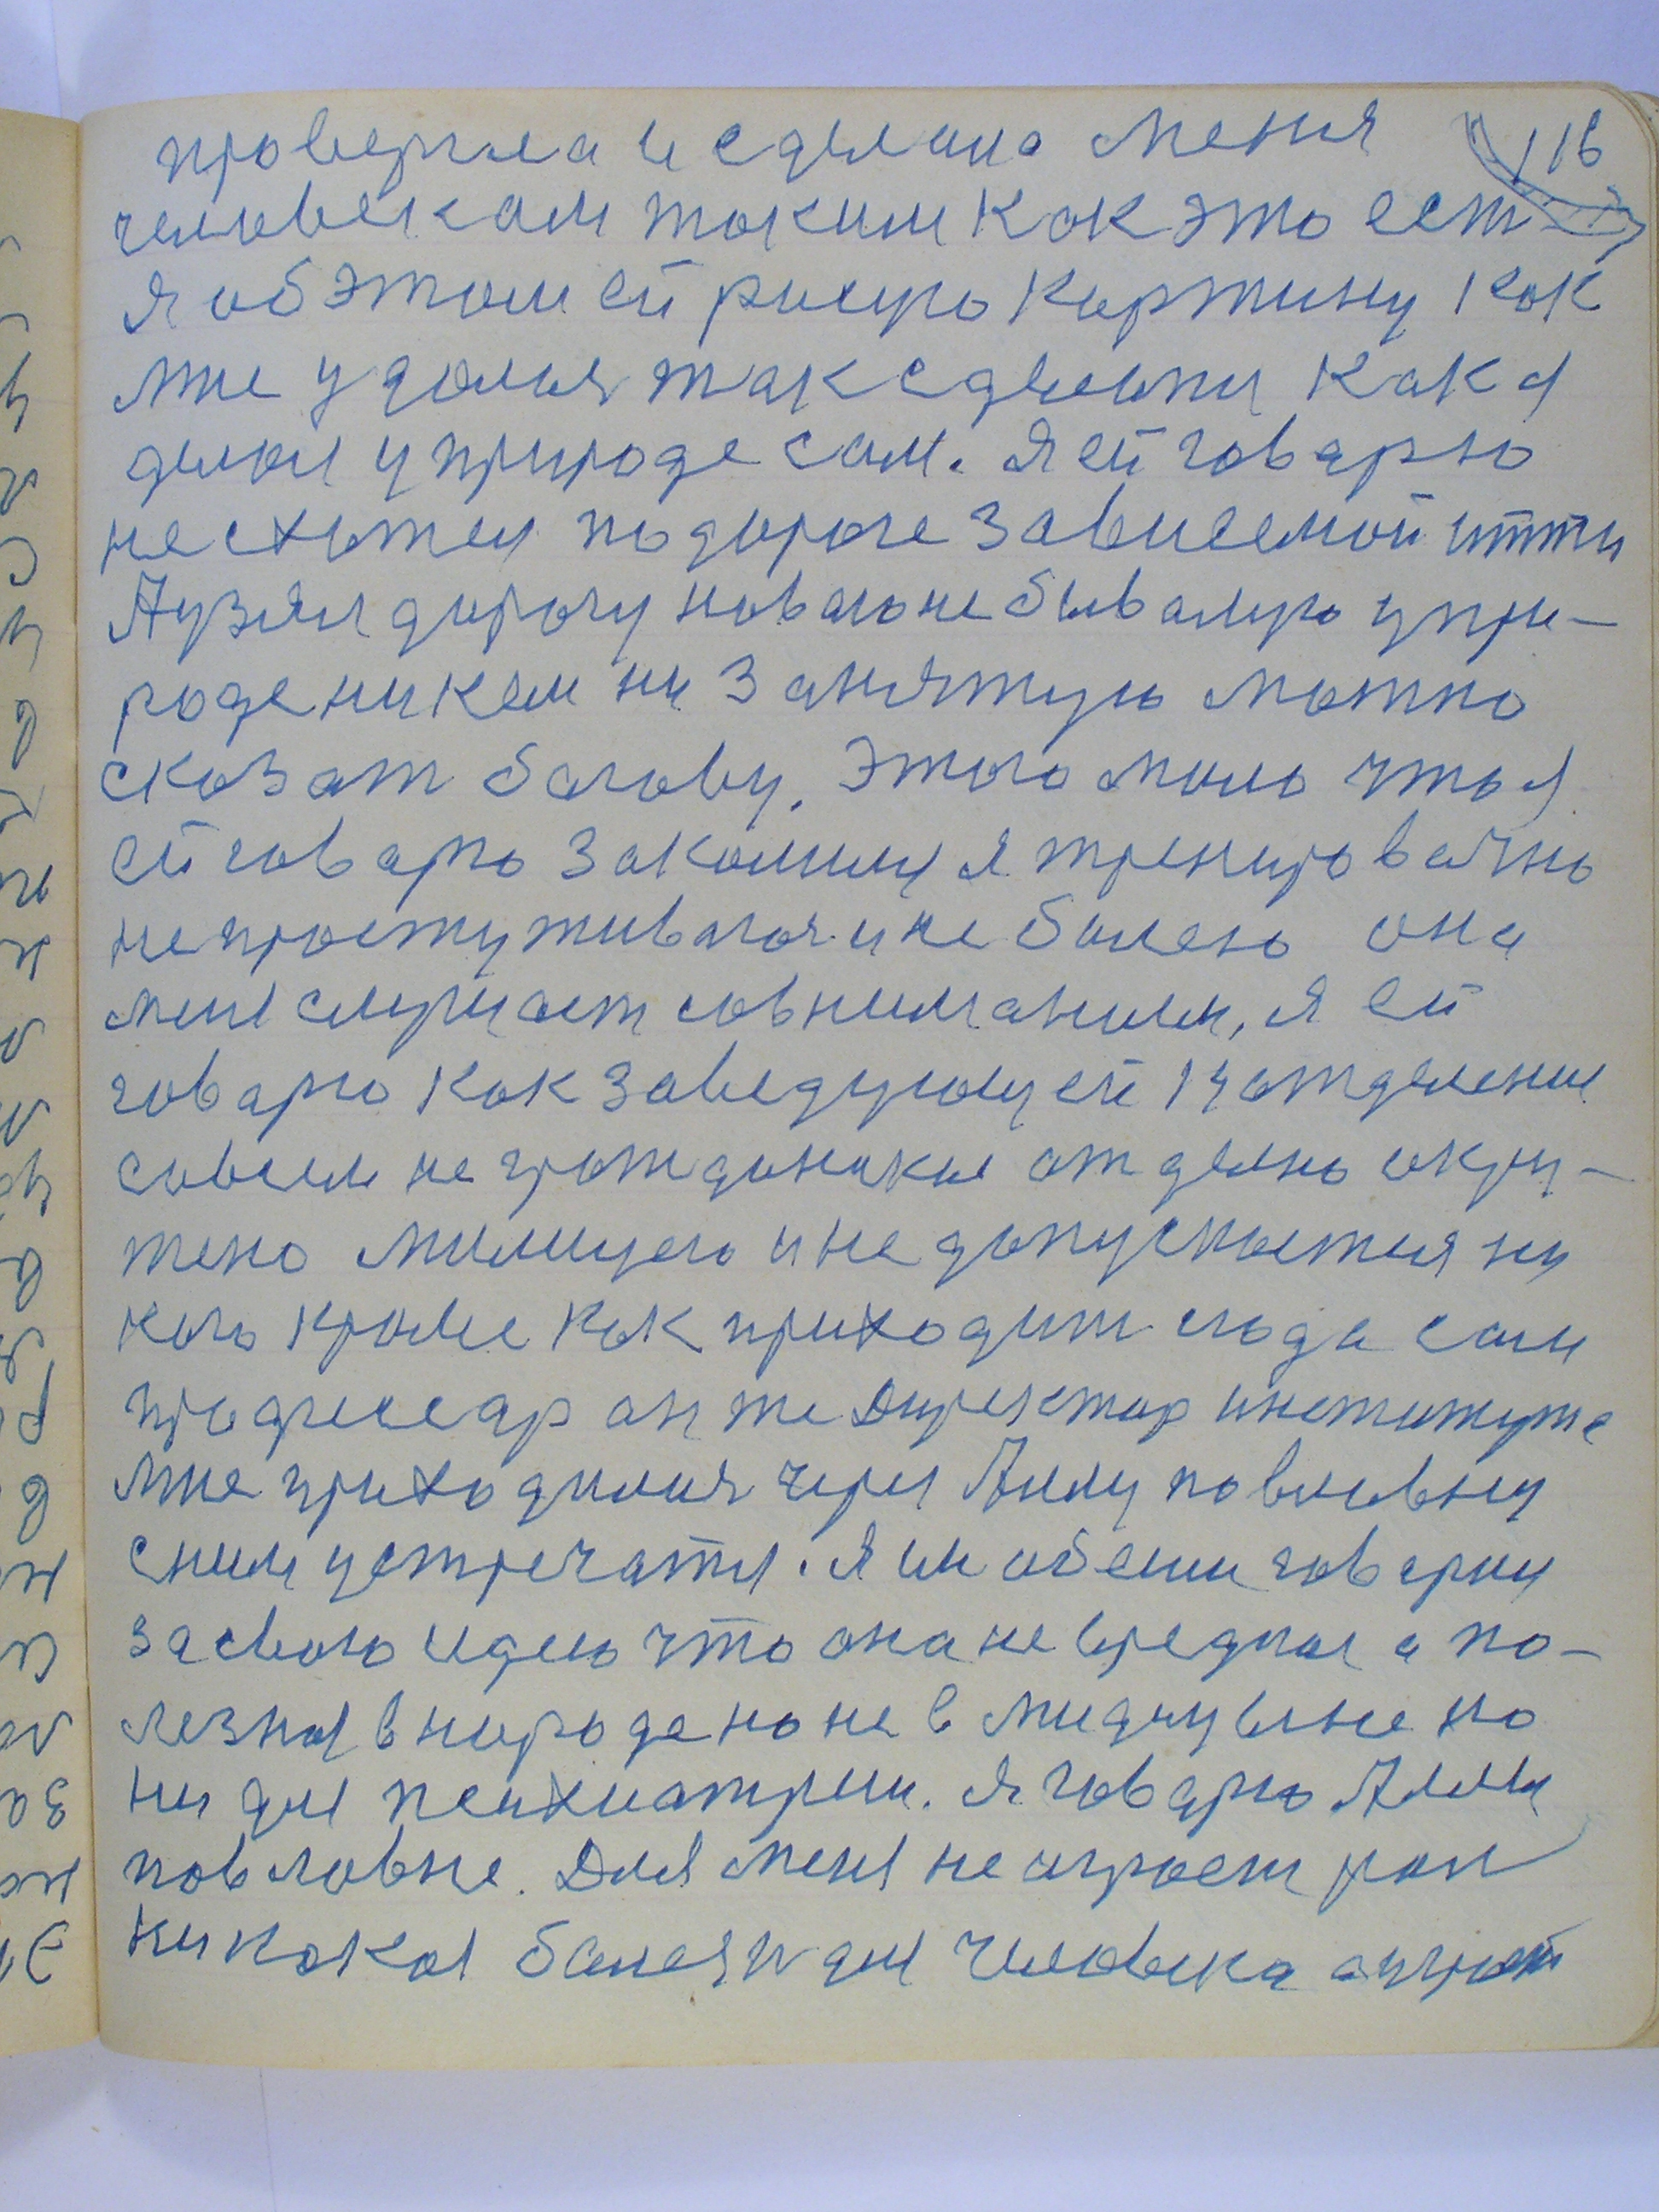 116
проверила и сделала меня
человекам таким как это ест
я об этом ей рисую картину как
мне удолия так сделати как я
делаю у природе сам. я ей говарю
не схотел по дороге зависемой итти
А узял дорогу новаю не бывалую у при-
роде никем ни занятую можно
сказат богову. Этого мало что я
ей говарю закалился тренировачно
не простуживаюся и не болею она
меня слушает совниманием, я ей
говарю как заведующей 14 отделение
совсем не гражданское отделено окру-
жено милицею и не допускается ни
кого кроме как приходит сюда сам
прафессар он же Директор института
мне приходился через Аллу повловну
сним устречатся. Я им обеим говарил
за свою идею что она не вредная а по-
лезная в народе но не в
ни для психиатрии. я говарю Алли
повловне. Для меня не играет рол
ни какая болезн для человека играет